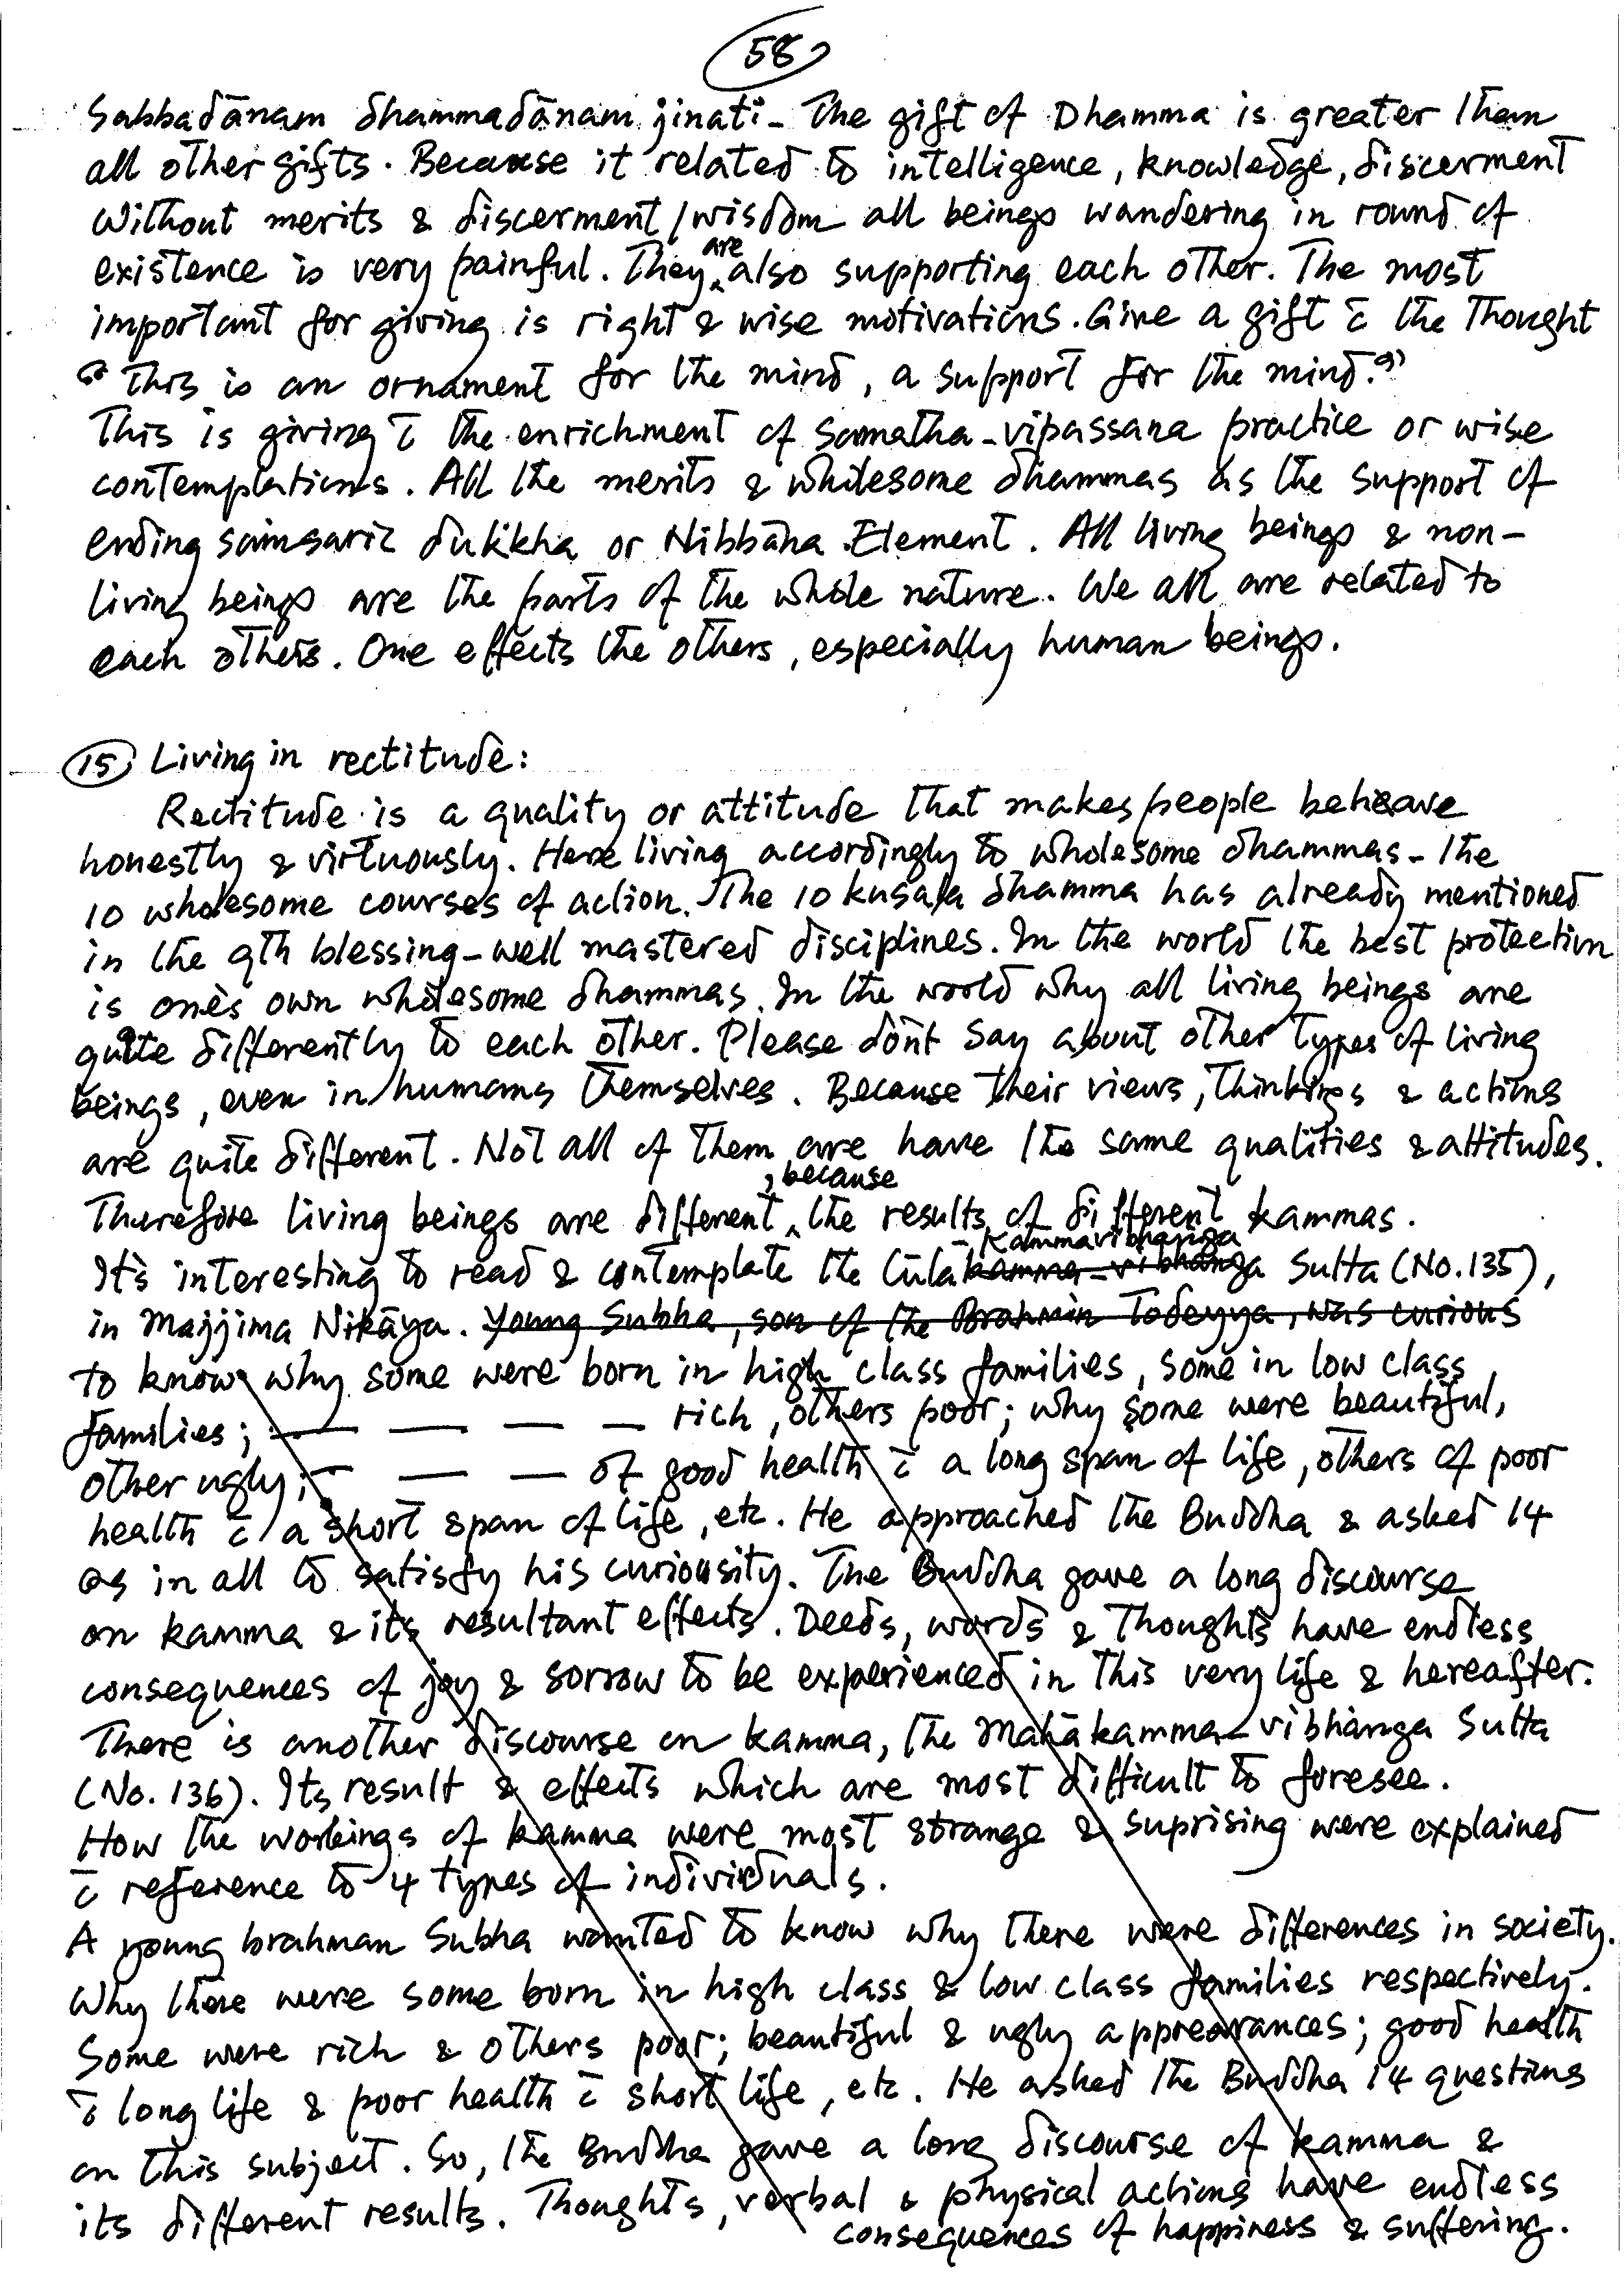 58
Sabbadānam dhammadānam jinati - The gift of Dhamma is greater them
all other gifts. Because it related to intelligence, knowledge, discerment
without merits & discerment/wisdom all beings wandering in round of
existence is very painful. They are also supporting each other. The most
important for giving is right & wise motivations. Give a gift c̄ the thought
"This is an ornament for the mind, a support for the mind."
This is giving c̄ the enrichment of samatha-vipassana practice or wise
contemplations. All the merits & wholesome dhammas as the support of
ending saṁsaric dukkha or Nibbāna Element. All living beings & non-
living beings are the parts of the whole nature. We all are related to
each others. One effects the others, especially human beings.
15 Living in rectitude:
Rectitude is a quality or attitude that makes people behave
honestly & virtuously. Here living accordingly to wholesome dhammas - the
10 wholesome courses of action. The 10 kusala dhamma has already mentioned
in the 9th blessing - well mastered disciplines. In the world the best protection
is one's own wholesome dhammas. In the world why all living beings are
quite differently to each other. Please don't say about other types of living
beings, even in humans themselves. Because their views, thinkings & actions
are quite different. Not all of them are have the same qualities & attitudes.
Therefore living beings are different, because the results of different kammas.
It's interesting to read & contemplate the Cūla-Kammavibhaṅga kamma-vibhaṅga Sutta (No. 135),
in Majjima Nikāya. Young Subha, son of the Brahmin Todeyya, was curious
to know why some were born in high class families, some in low class
families; — — — — rich, others poor; why some were beautiful,
other ugly; — — — of good health c̄ a long span of life, others of poor
health c̄ a short span of life, etc. He approached the Buddha & asked 14
Qs in all to satisfy his curiousity. The Buddha gave a long discourse
on kamma & its resultant effects. Deeds, words & thoughts have endless
consequences of joy & sorrow to be experienced in this very life & hereafter.
There is another discourse on kamma, the Mahākamma-vibhaṅga Sutta
(No. 136). Its result & effects which are most difficult to foresee.
How the workings of kamma were most strange & suprising were explained
c̄ reference to 4 types of individuals.
A young brahman Subha wanted to know why there were differences in society.
Why there were some born in high class & low class families respectively.
Some were rich & others poor; beautiful & ugly apprearances; good health
c̄ long life & poor health c̄ short life, etc. He asked the Buddha 14 questions
on this subject. So, the Buddha gave a long discourse of kamma &
its different results. Thoughts, verbal & physical actions have endless
consequences of happiness & suffering.